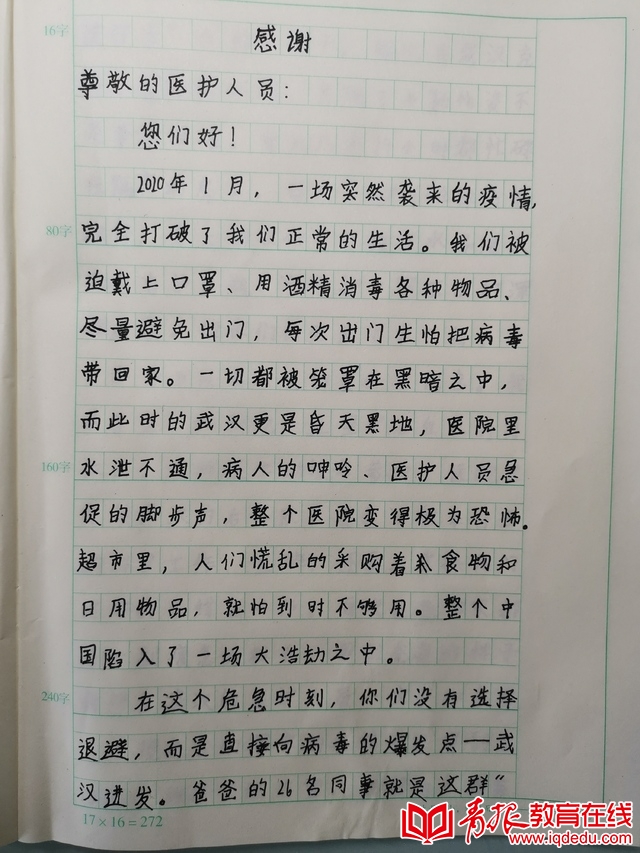 16字
感谢
尊敬的医护人员：
您们好！
2020年1月，一场突然袭来的疫情，
80字
完全打破了我们正常的生活。我们被
迫戴上口罩、用酒精消毒各种物品、
尽量避免出门，每次出门生怕把病毒
带回家。一切都被笼罩在黑暗之中，
而此时的武汉更是昏天黑地，医院里
160字
水泄不通，病人的呻呤、医护人员急
促的脚步声，整个医院变得极为恐怖。
超市里，人们慌乱的采购着食物和
日用物品，就怕到时不够用。整个中
国陷入了一场大浩劫之中。
240字
在这个危急时刻，你们没有选择
退避，而是直接向病毒的爆发点——武
汉进发。爸爸的26名同事就是这群“
17×16=272
青报教育在线
www.iqdedu.com